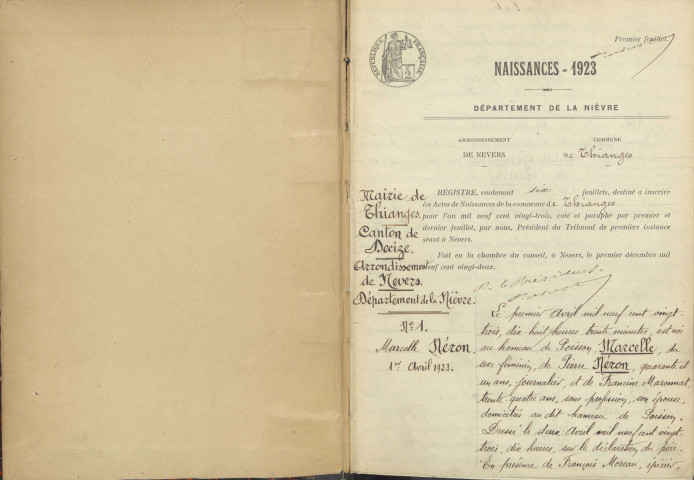 Premier feuillet.
RÉPUBLIQUE FRANÇAISE
NAISSANCES - 1923
DÉPARTEMENT DE LA NIÈVRE
ARRONDISSEMENT
DE NEVERS
COMMUNE
de Thianges
REGISTRE, contenant six feuillets, destiné à inscrire
les Actes de Naissances de la commune de Thianges
pour l'an mil neuf cent vingt-trois, coté et paraphé par premier et
dernier feuillet, par nous, Président du Tribunal de première instance
séant à Nevers.
Fait en la chambre du conseil, à Nevers, le premier décembre mil
neuf cent vingt-deux.
P. le Président.
Mairie de
Thianges.
Canton de
Decize.
Arrondissement
de Nevers.
Département de la Nièvre.
N° 1.
Marcelle Néron.
1er Avril 1923.
Le premier Avril mil neuf cent vingt
trois, dix-huit heures trente minutes, est née
au hameau de Poisson, Marcelle, du
sexe féminin, de Pierre Néron, quarante et
un ans, journalier, et de Francine Maronnat
trente quatre ans, sans profession, son épouse,
domiciliés au dit hameau de Poisson.
Dressé le deux Avril mil neuf cent vingt
trois, dix heures, sur la déclaration du père.
En présence de François Moreau, épicier,